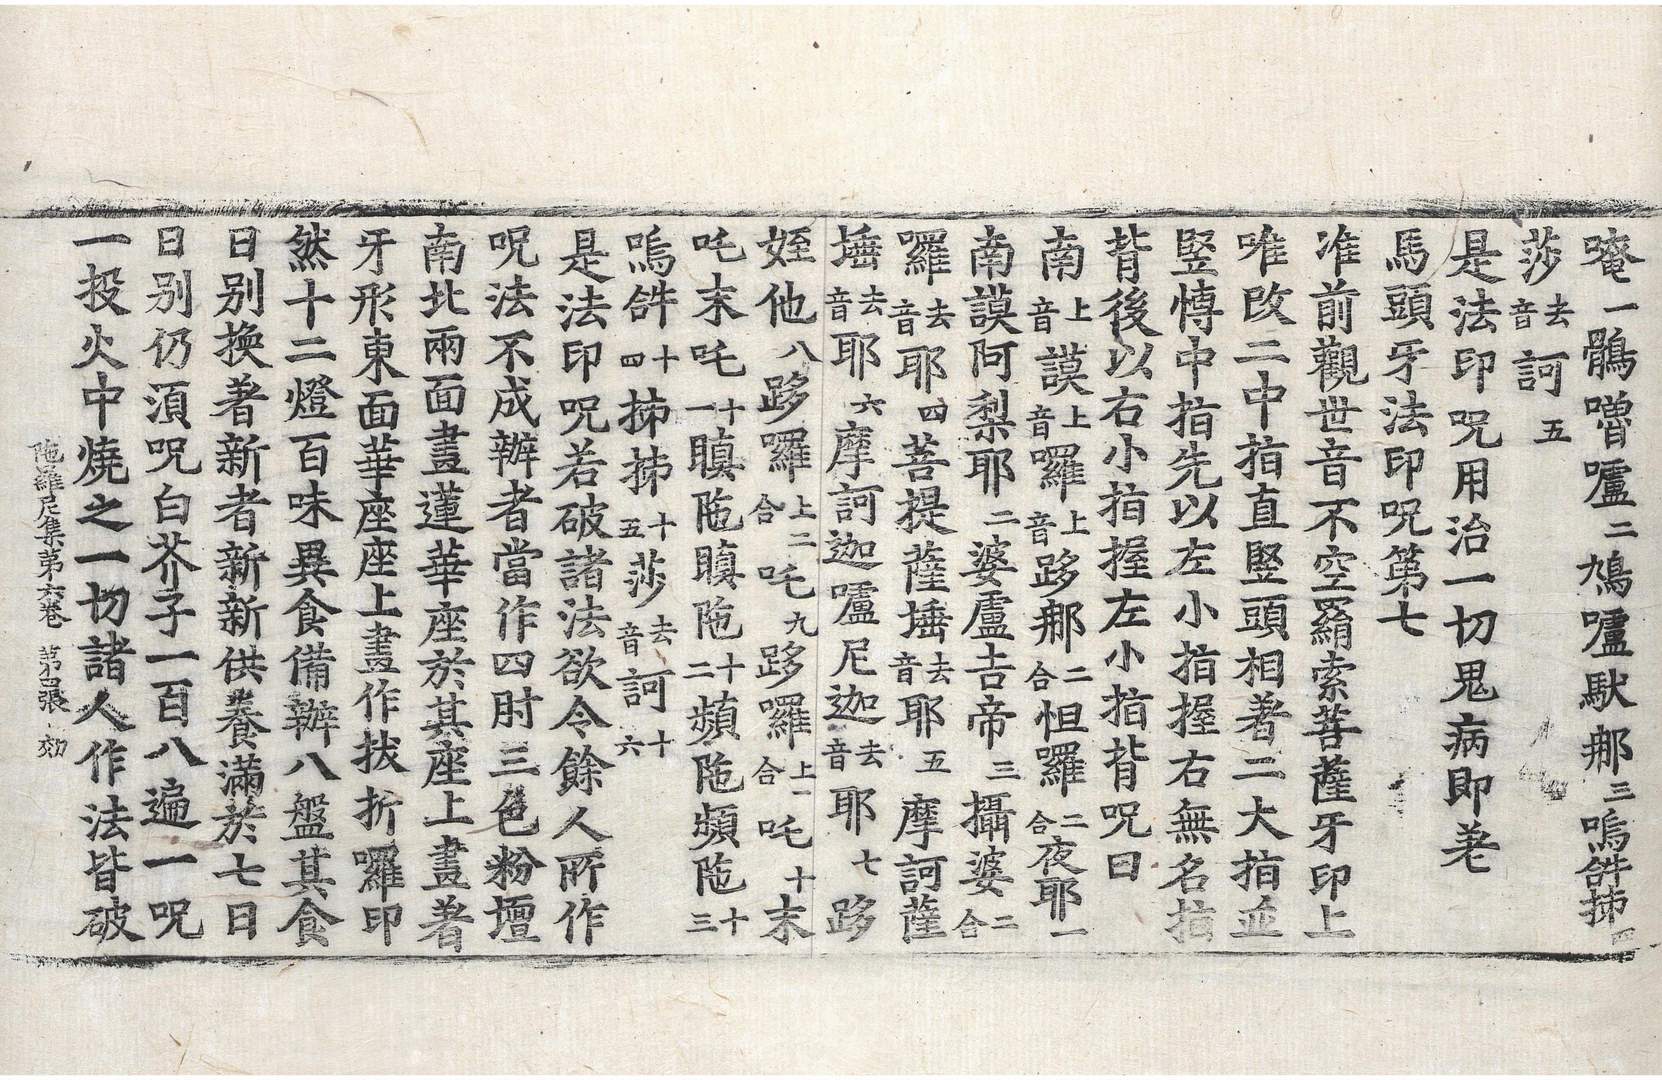 唵一鶻嚕嚧二鳩嚧馱那三嗚𤙖㧊四
莎去音訶五
是法印呪用治一切鬼病即差
馬頭牙法印呪第七
准前觀世音不空羂索菩薩牙印上
唯改二中指直竪頭相著二大指並
竪慱中指先以左小指握右無名指
背後以右小指握左小指背呪曰
南上音謨上音囉上音跢那二合怛囉二合夜耶一
南謨阿梨耶二婆盧吉帝三攝婆二合
囉去音耶四菩提薩埵去音耶五摩訶薩
埵去音耶六摩訶迦嚧尼迦去音耶七跢
姪他八跢囉上二合吒九跢囉上一合吒十末
吒末吒十一瞋陁瞋陁十二頻陁頻陁十三
嗚𤙖十四㧊㧊十五莎去音訶十六
是法印呪若破諸法欲令餘人所作
呪法不成辦者當作四肘三色粉壇
南北兩面畫蓮華座於其座上畫著
牙形東面華座座上畫作拔折囉印
然十二燈百味異食備辦八盤其食
日別換著新者新新供養滿於七日
日別仍湏呪白芥子一百八遍一呪
一投火中燒之一切諸人作法皆破
陁羅尼集第六卷 第四張 効